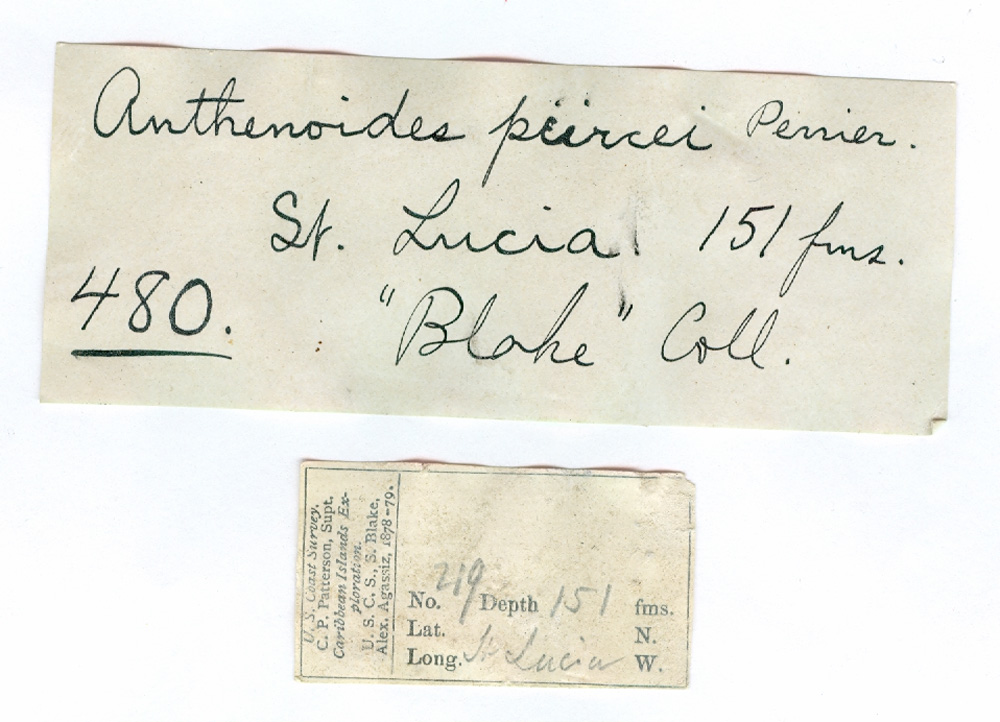 Anthenoides peircei Perrier.
St. Lucia 151 fms.
480.
"Blake" Coll.
U. S. Coast Survey.
C. P. Patterson, Supt.
Caribbean Islands Ex-
ploration.
U. S. C. S., S. Blake,
Alex. Agassiz, 1878-79.
No. 219 Depth 151 fms.
Lat. N.
Long. St Lucia W.